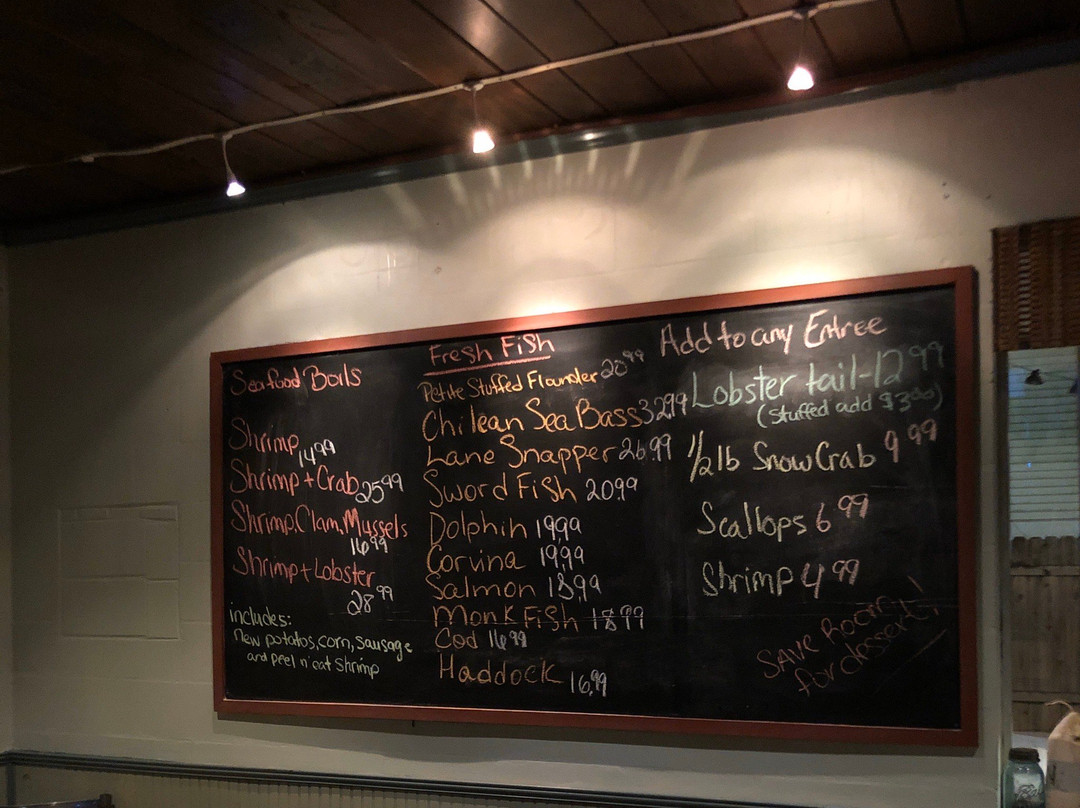 Seafood Boils
Shrimp 14.99
Shrimp + Crab 25.99
Shrimp, Clam, Mussels
16.99
Shrimp + Lobster
28.99
includes:
New potatos, corn, sausage
and peel n' eat Shrimp
Fresh Fish
Petite Stuffed Flounder 20.99
Chilean Sea Bass 32.99
Lane Snapper 26.99
Sword Fish 20.99
Dolphin 19.99
Corvina 19.99
Salmon 18.99
Monk Fish 18.99
Cod 16.99
Haddock 16.99
Add to any Entree
Lobster tail - 12.99
(Stuffed add $3.00)
1/2 lb Snow Crab 9.99
Scallops 6.99
Shrimp 4.99
SAVE ROOM
for dessert!